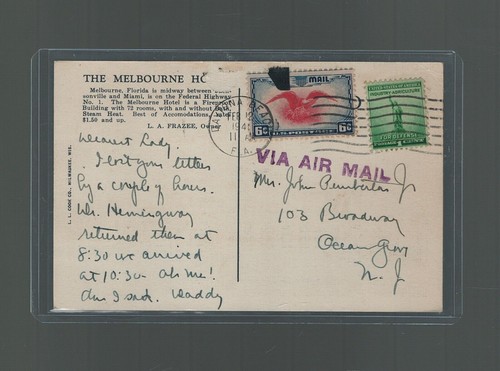 THE MELBOURNE HO
Melbourne, Florida is midway between
sonville and Miami, is on the Federal Highway
No. 1. The Melbourne Hotel is a Fireproof
Building with 72 rooms, with and without
Steam Heat. Best of Accomodations,
$1.50 and up.
L. A. FRAZEE, Owner
L. L. COOK CO., MILWAUKEE, WIS.
Dearest Lady,
I lost your letters
by a couple of hours.
Mr. Hemingway
returned them at
8:30 we arrived
at 10:30 - Ah me!
Am I sad. Daddy
DAYTONA BEACH
FEB 12
194
11 A
FLA.
MAIL
6¢ U.S. POSTAGE 6¢
UNITED STATES OF AMERICA
INDUSTRY AGRICULTURE
FOR DEFENSE
1
VIA AIR MAIL
Mrs. John Pemberton Jr
103 Broadway
Ocean Grove
N. J